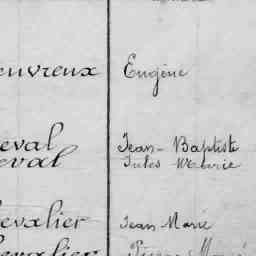 euvreux Eugène
eval Jean-Baptiste
eval Jules Marie
evalier Jean Marie
evalier Pierre Marie